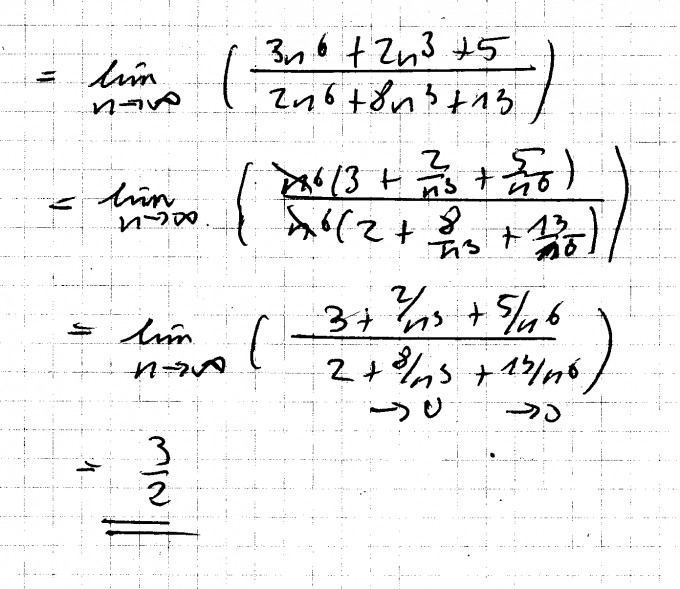 = lim n→∞ ( (3n^6 + 2n^3 + 5) / (2n^6 + 8n^3 + 13) )
= lim n→∞ ( n^6(3 + 2/n^3 + 5/n^6) / n^6(2 + 8/n^3 + 13/n^6) )
= lim n→∞ ( (3 + 2/n^3 + 5/n^6) / (2 + 8/n^3 + 13/n^6) )
→0 →0
= 3/2